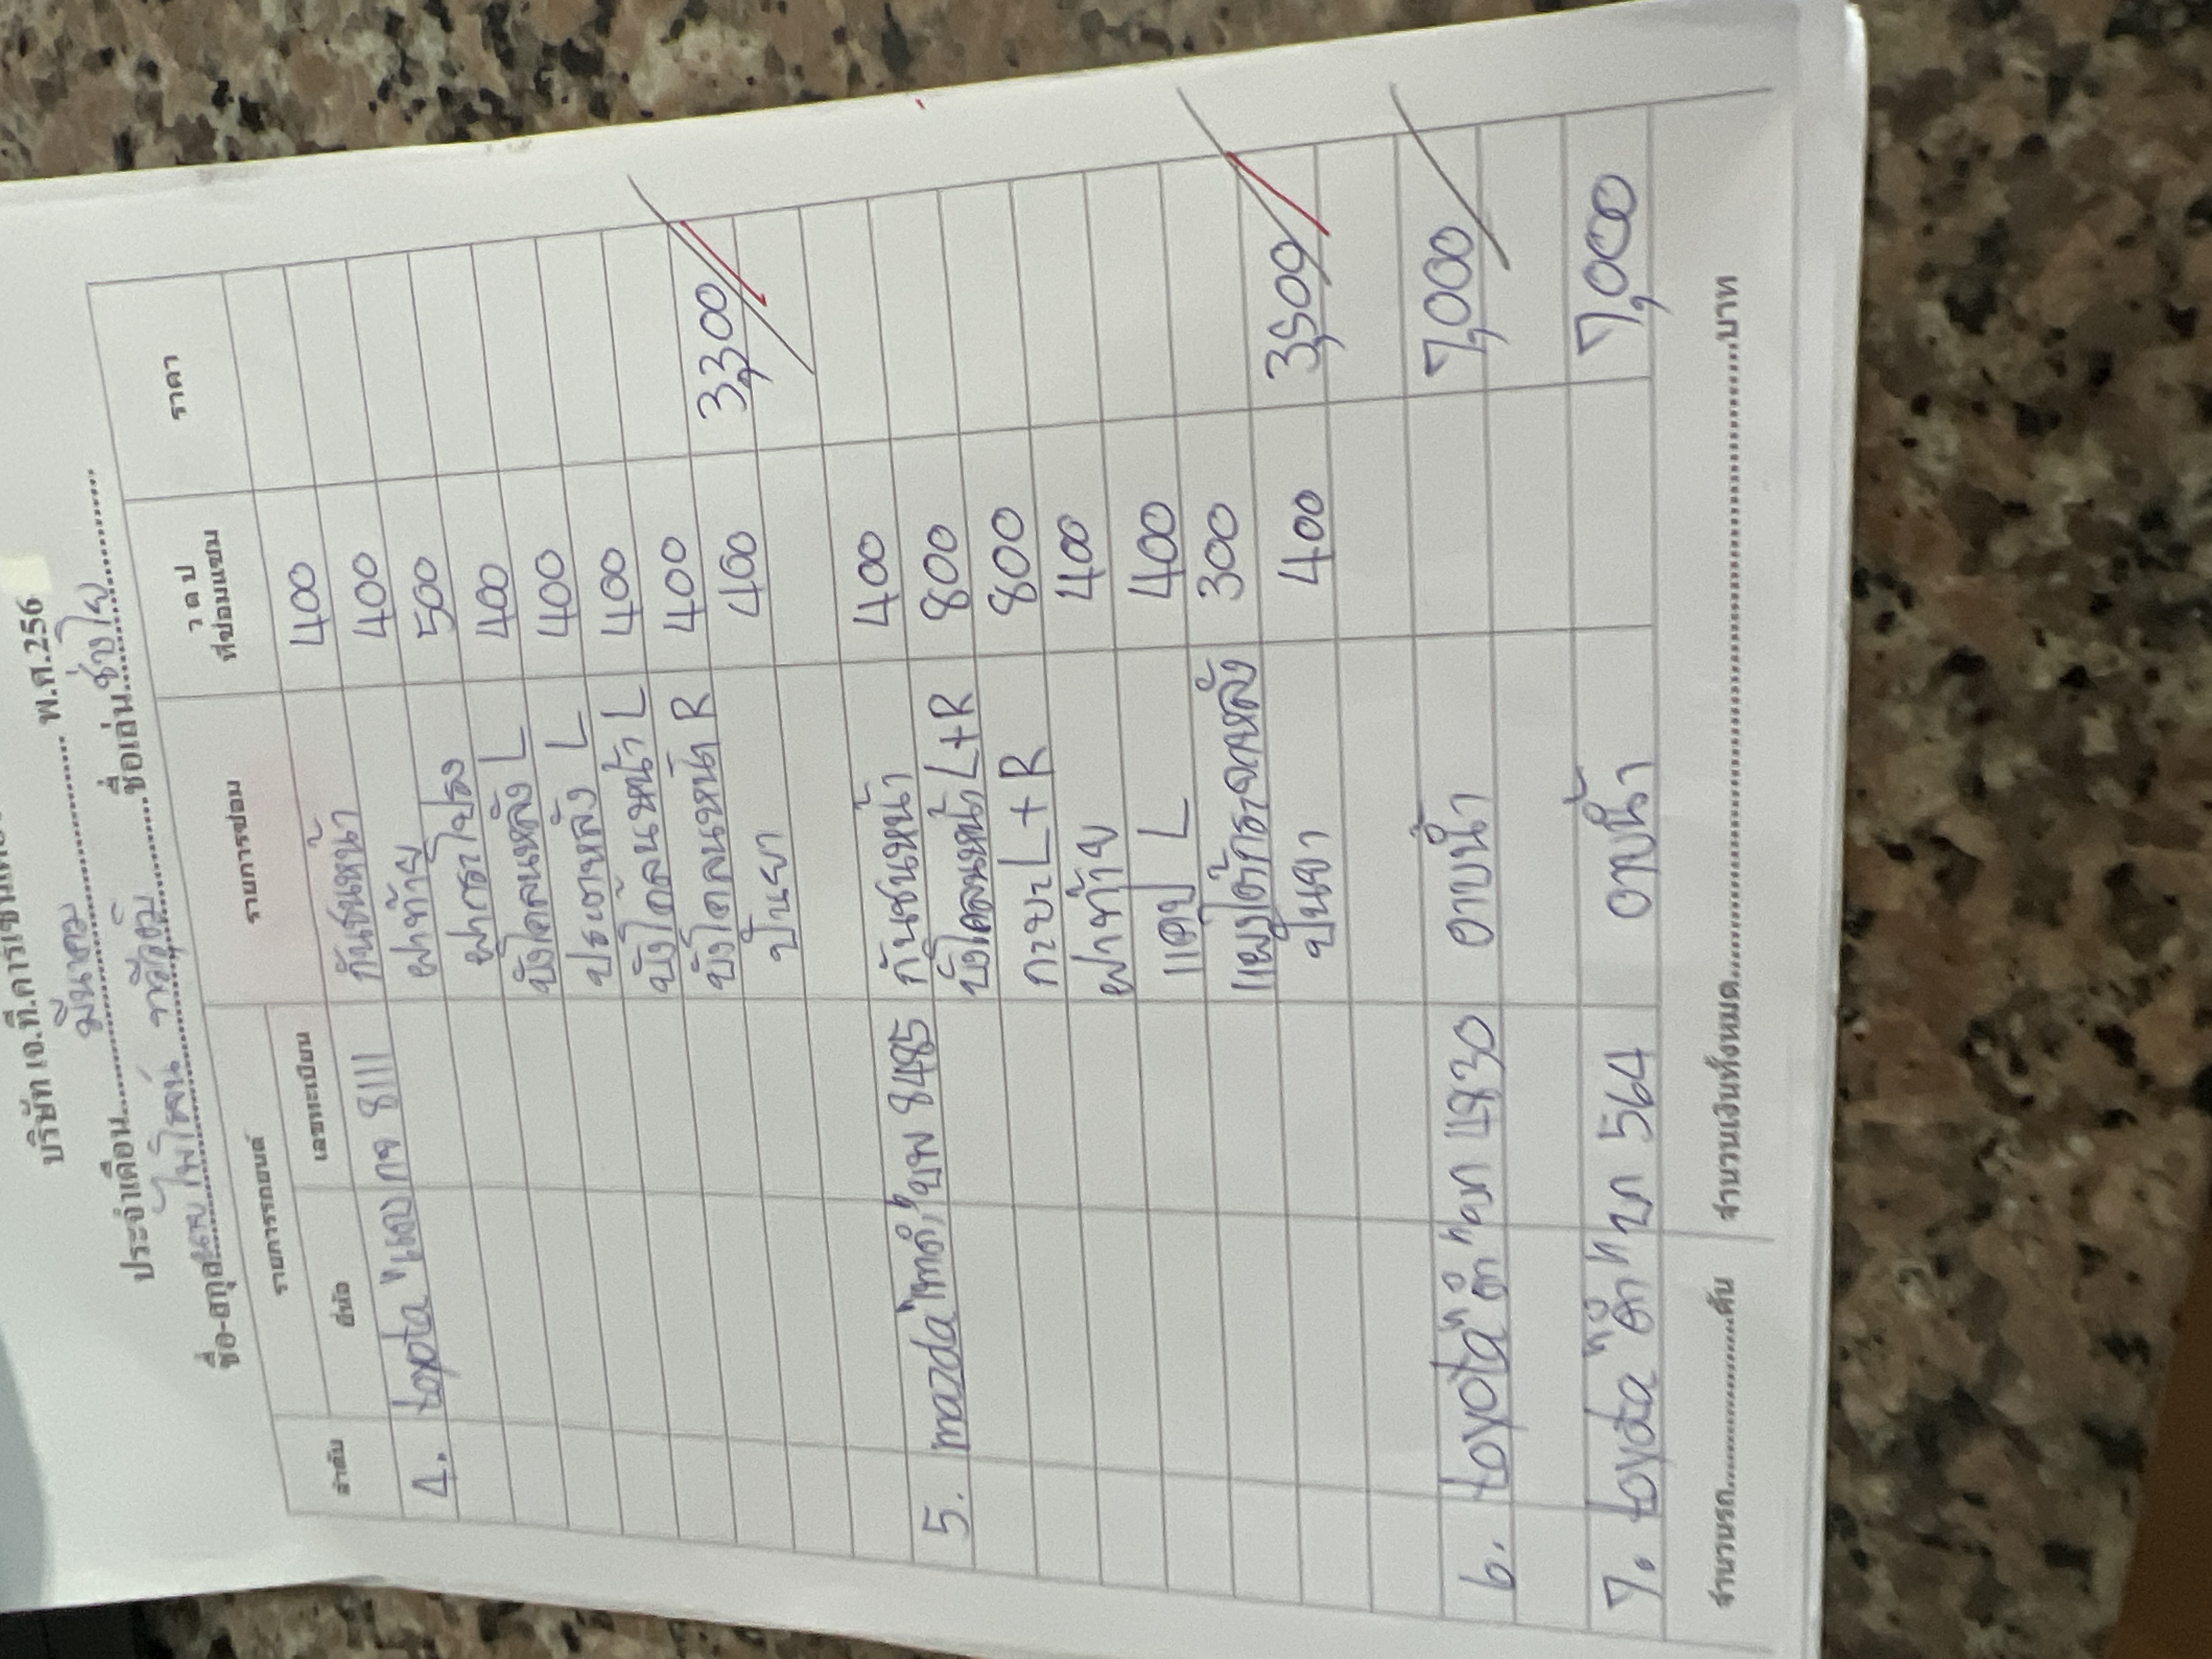 บริษัท เจ.ที.การเซ็นเตอร์
ประจำเดือน มีนาคม พ.ศ.256
ชื่อ-สกุล นาย ไพโรจน์ ชื่อเล่น ช่างโย
ลำดับ รายการรถยนต์ รายการซ่อม ว ด ป ที่ซ่อมแซม ราคา
ยี่ห้อ เลขทะเบียน
4. toyota "แดง" กจ 8111 กันชนหน้า 400
ฝาท้าย 400
ฝากระโปรง 500
บังโคลนหลัง L 400
ประตูหลัง L 400
บังโคลนหน้า L 400
บังโคลนหน้า R 400
ปั่นยา 400 3,300
5. mazda "เทาดำ" บพ 8485 กันชนหน้า 400
บังโคลนหน้า L+R 800
กะบะ L+R 800
ฝาท้าย 400
แคป L 400
แผงใต้กระจกหลัง 300
ปั่นยา 400 3,500
6. toyota "ดำ" 4830 อาบน้ำ 7,000
7. toyota "ดำ" บท 564 อาบน้ำ 7,000
จำนวนรถ คัน จำนวนเงินทั้งหมด บาท